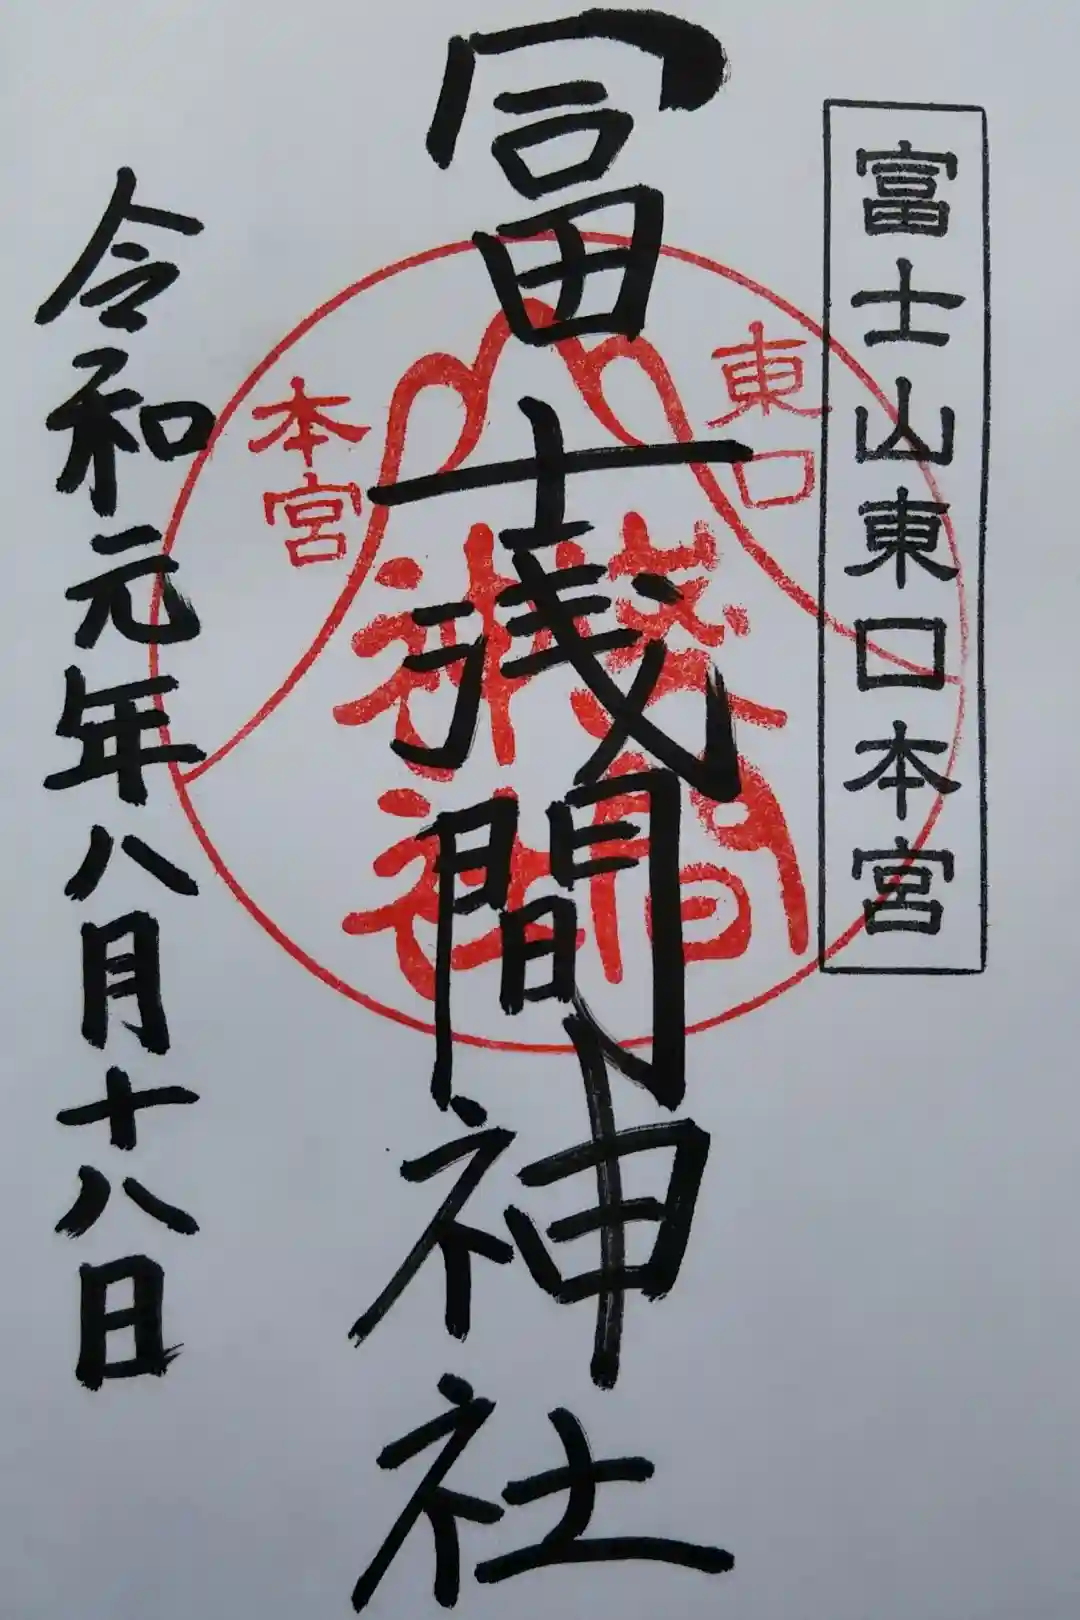 富士山東口本宮
冨士浅間神社
東口
本宮
浅間
神社
令和元年八月十八日